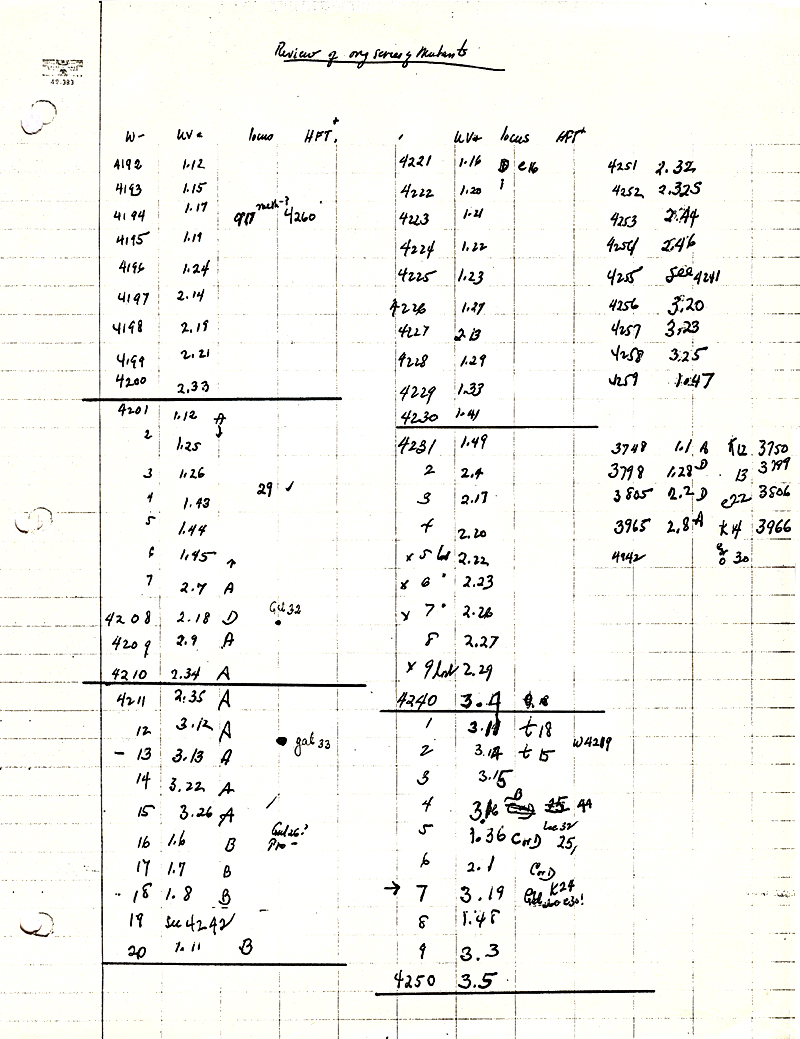 Review of orig series of Mutants
W- UV= locus HFT+
4192 1.12
4193 1.15
4194 1.17 meth-? 4260
4195 1.19
4196 1.24
4197 2.14
4198 2.19
4199 2.21
4200 2.33
4201 1.12 A
2 1.25 ↓
3 1.26
4 1.43 29 ✓
5 1.44
6 1.45 ↑
7 2.7 A
4208 2.18 D Gal 32
4209 2.9 A
4210 2.34 A
4211 2.35 A
12 3.12 A
- 13 3.13 A gal 33
14 3.22 A
15 3.26 A
16 1.6 B Gal 26? Pro-
17 1.7 B
18 1.8 B
19 see 4242
20 1.11 B
UV= locus HFT+
4221 1.16 D
4222 1.20
4223 1.21
4224 1.22
4225 1.23
4226 1.27
4227 2.13
4228 1.29
4229 1.33
4230 1.41
4231 1.49
2 2.4
3 2.17
4 2.20
x 5 lost 2.22
x 6 " 2.23
x 7 " 2.26
8 2.27
x 9 lost 2.29
4240 3.4
1 3.11 t 18
2 3.14 t 15 W4219
3 3.15
4 3.16 B 44
5 1.36 C or D Lac 32 25,
6 2.1 C or D
→ 7 3.19 K24
8 1.48
9 3.3
4250 3.5
4251 2.32
4252 2.325
4253 2.44
4254 2.46
4255 see 4241
4256 3.20
4257 3.23
4258 3.25
4259 1.47
3748 1.1 A K12 3750
3798 1.28 D 13 3799
3805 2.2 D e22 3806
3965 2.8 A K14 3966
4942 30